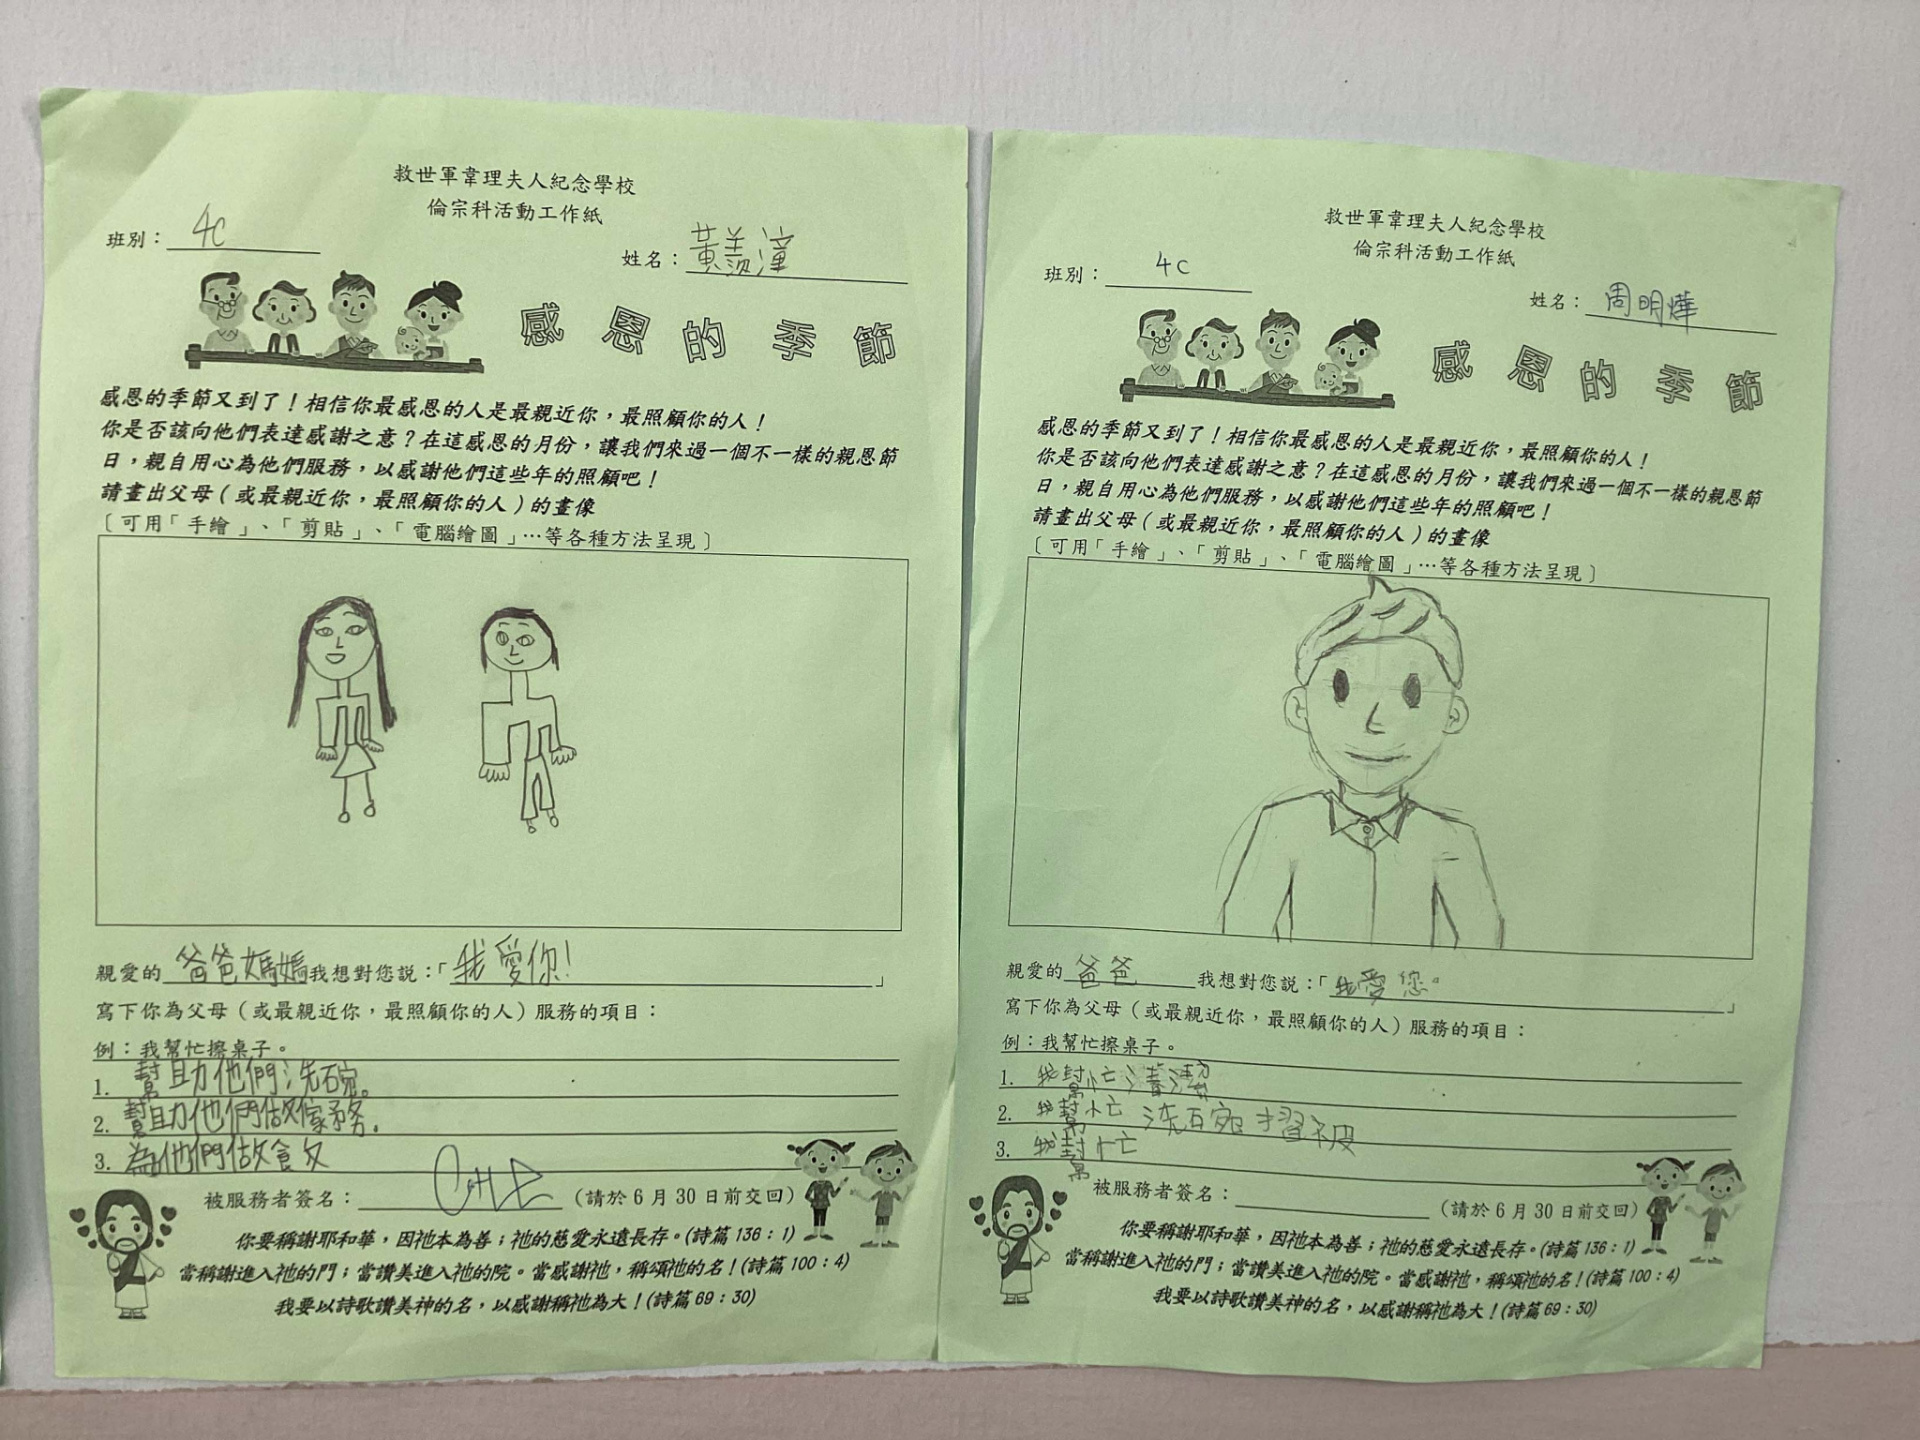 救世軍韋理夫人紀念學校
倫宗科活動工作紙
班別：4C
姓名：黃羨潼
感恩的季節
感恩的季節又到了！相信你最感恩的人是最親近你，最照顧你的人！
你是否該向他們表達感謝之意？在這感恩的月份，讓我們來過一個不一樣的親恩節
日，親自用心為他們服務，以感謝他們這些年的照顧吧！
請畫出父母（或最親近你，最照顧你的人）的畫像
〔可用「手繪」、「剪貼」、「電腦繪圖」…等各種方法呈現〕
親愛的爸爸媽媽我想對您說：「我愛你！」
寫下你為父母（或最親近你，最照顧你的人）服務的項目：
例：我幫忙擦桌子。
1. 幫助他們洗碗。
2. 幫助他們做傢務.
3. 為他們做食
被服務者簽名：（請於6月30日前交回）
你要稱謝耶和華，因祂本為善；祂的慈愛永遠長存。(詩篇136：1)
當稱謝進入祂的門；當讚美進入祂的院。當感謝祂，稱頌祂的名！(詩篇100：4)
我要以詩歌讚美神的名，以感謝稱祂為大！(詩篇69：30)
救世軍韋理夫人紀念學校
倫宗科活動工作紙
班別：4C
姓名：周明燁
感恩的季節
感恩的季節又到了！相信你最感恩的人是最親近你，最照顧你的人！
你是否該向他們表達感謝之意？在這感恩的月份，讓我們來過一個不一樣的親恩節
日，親自用心為他們服務，以感謝他們這些年的照顧吧！
請畫出父母（或最親近你，最照顧你的人）的畫像
〔可用「手繪」、「剪貼」、「電腦繪圖」…等各種方法呈現〕
親愛的爸爸我想對您說：「我愛您。」
寫下你為父母（或最親近你，最照顧你的人）服務的項目：
例：我幫忙擦桌子。
1. 我幫忙清潔
2. 我幫忙洗碗摺被
3. 我幫忙
被服務者簽名：（請於6月30日前交回）
你要稱謝耶和華，因祂本為善；祂的慈愛永遠長存。(詩篇136：1)
當稱謝進入祂的門；當讚美進入祂的院。當感謝祂，稱頌祂的名！(詩篇100：4)
我要以詩歌讚美神的名，以感謝稱祂為大！(詩篇69：30)